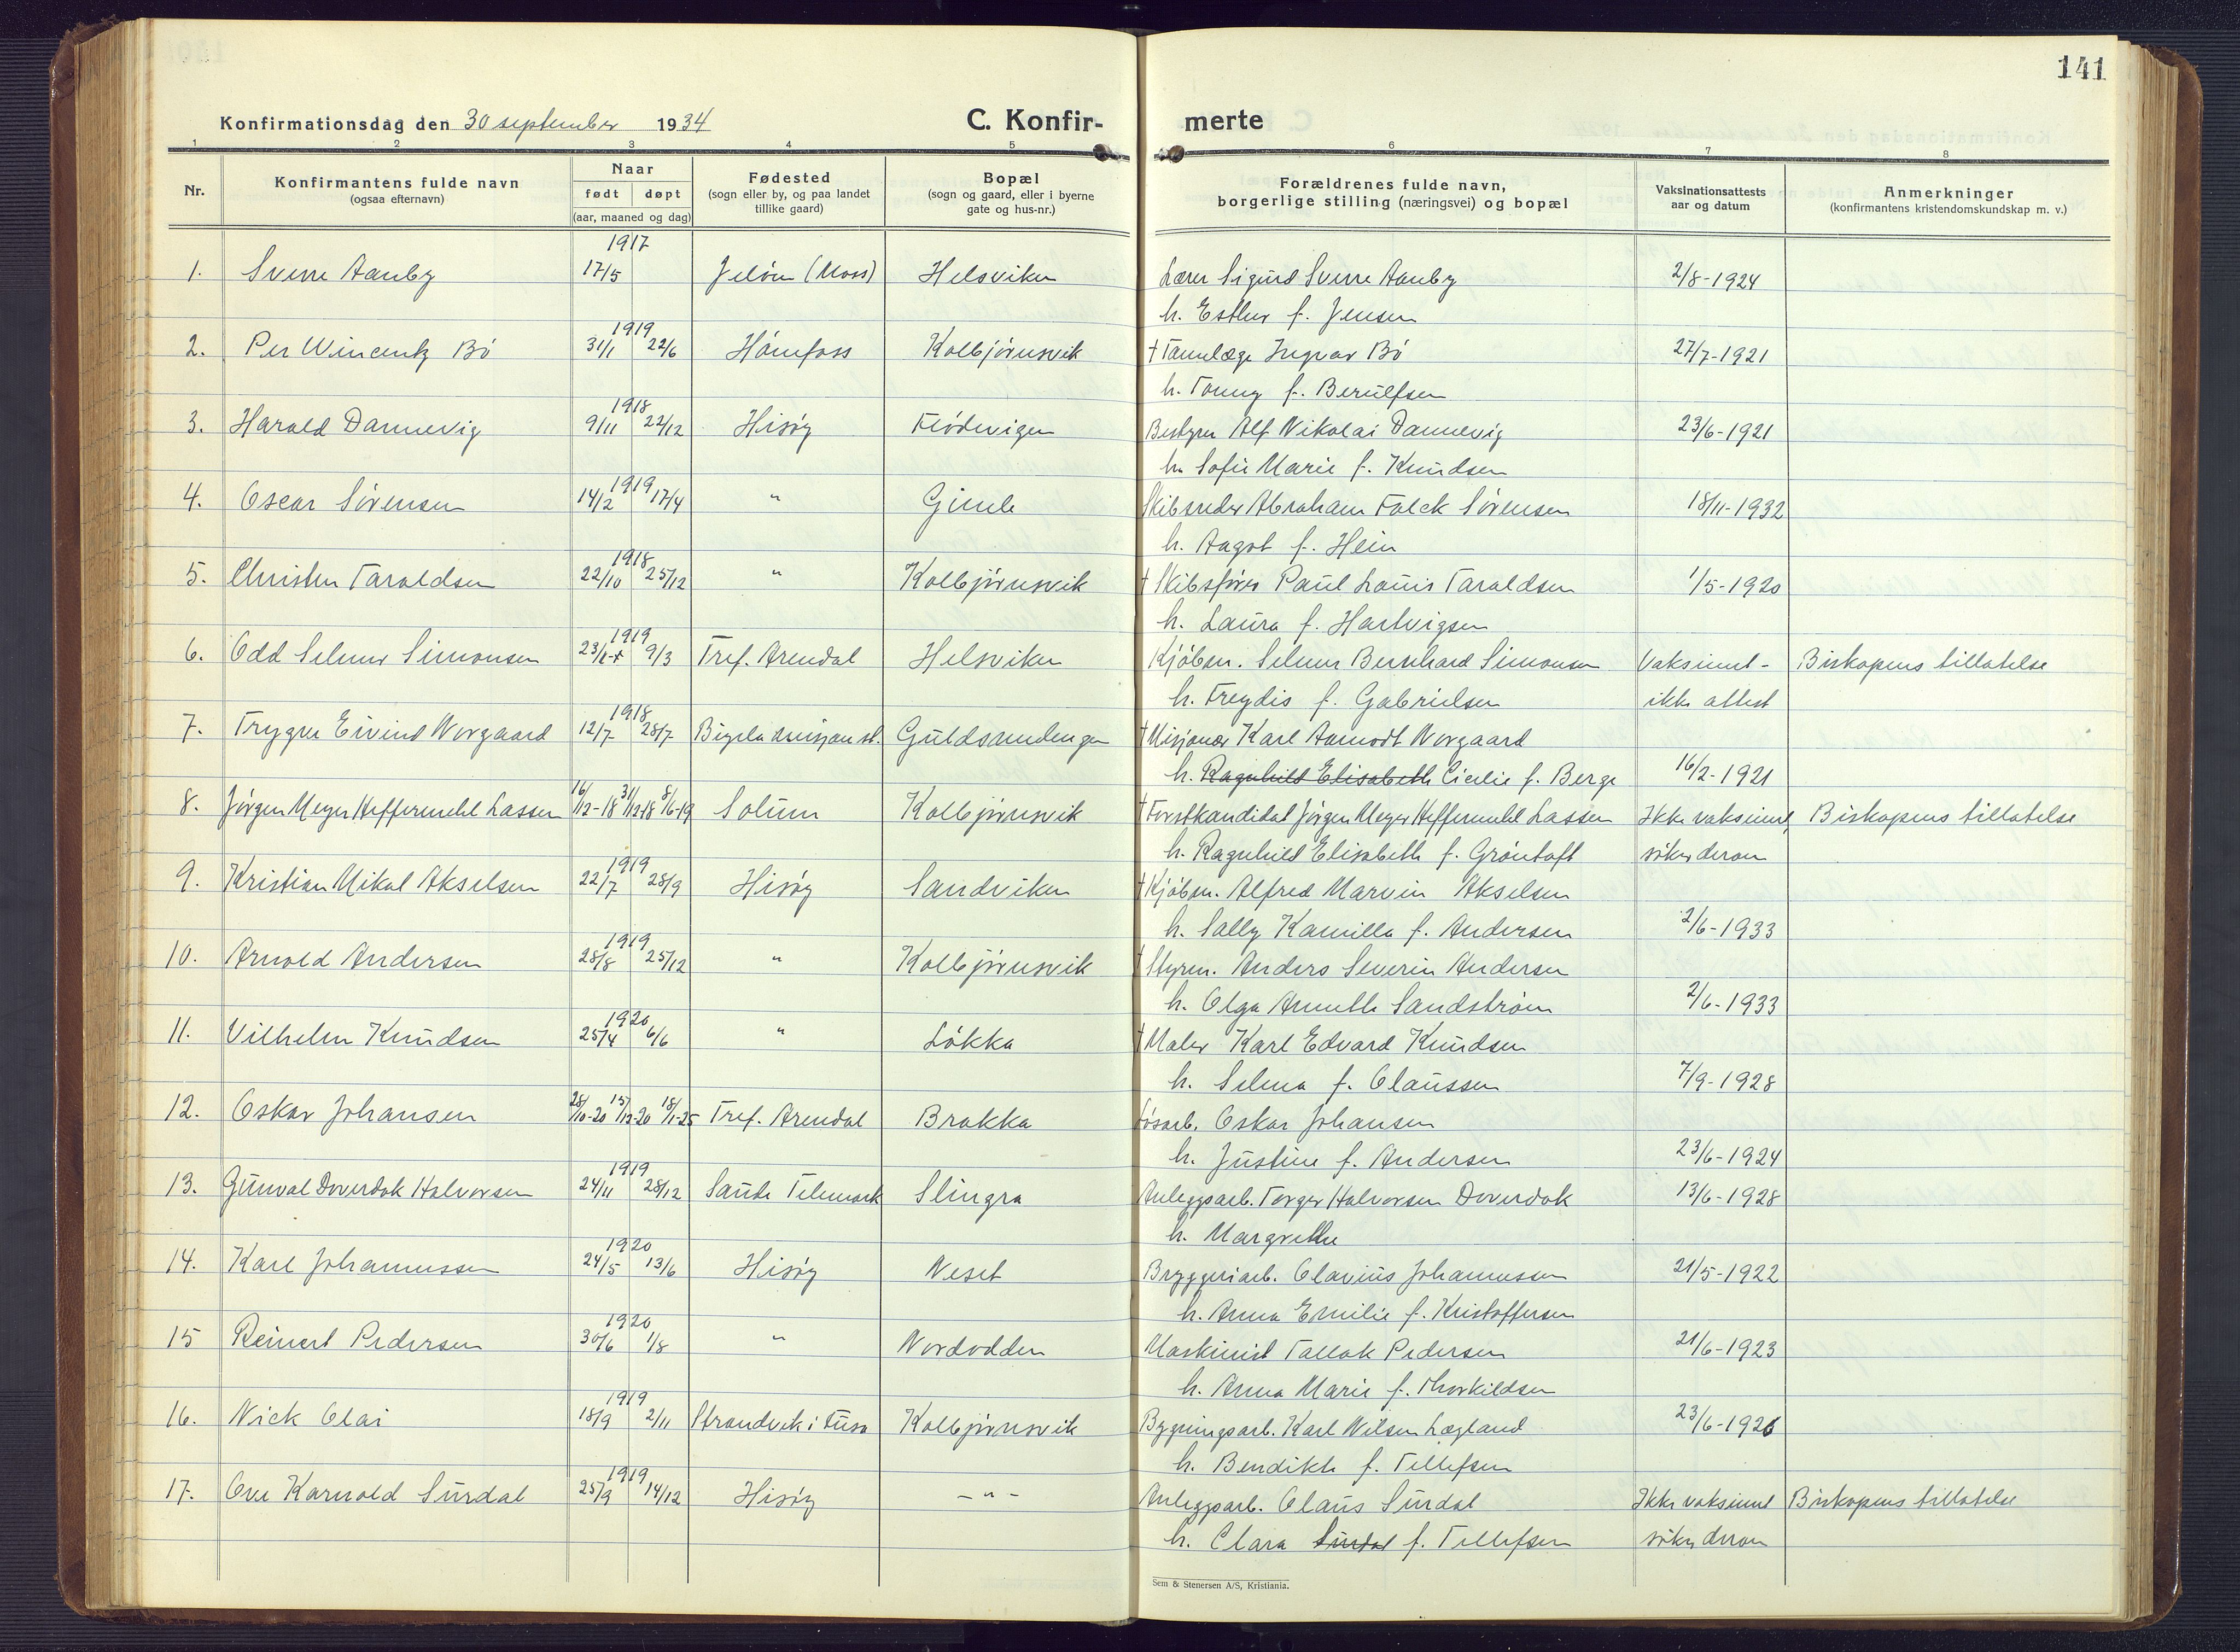 141
Konfirmationsdag den 30 september 1934 C. Konfir- merte
1 2 3 4 5 6 7 8
Nr. Konfirmantens fulde navn (ogsaa efternavn) Naar født døpt (aar, maaned og dag) Fødested (sogn eller by, og paa landet tillike gaard) Bopæl (sogn og gaard, eller i byerne gate og hus-nr.) Forældrenes fulde navn, borgerlige stilling (næringsvei) og bopæl Vaksinationsattests aar og datum Anmerkninger (konfirmantens kristendomskundskap m. v.)
1917
1. Sverre Aanby 17/5 Jeløen (Moss) Helsviken Lærer Sigurd Sverre Aanby 2/8-1924
h. Esther f. Jensen
1919
2. Per Wincentz Bö 31/1 22/6 Hönefoss Kolbjörnsvik † Tannlæge Ingvar Bö 27/7-1921
h. Fanny f. Berulfsen
1918
3. Harald Dannevig 9/11 22/12 Hisöy Flödevigen Bestyrer Alf Nikolai Dannevig 23/6-1921
h. Sofie Marie f. Knudsen
1919
4. Oscar Sörensen 14/2 17/4 " Gimle Skibsreder Abraham Falck Sörensen 18/11-1932
h. Aagot f. Hein
1918
5. Christen Taraldsen 22/10 25/12 " Kolbjörnsvik † Skibsförer Paul Louis Taraldsen 1/5-1920
h. Laura f. Hartvigsen
1919
6. Odd Selmer Simonsen 23/1 9/3 Tref. Arendal Helsviken Kjöbm. Selmer Bernhard Simonsen Vaksinert - Biskopens tillatelse
h. Freydis f. Gabrielsen ikke attest
1918
7. Trygve Eivind Norgaard 12/7 28/7 Guldsmedengen † Misjonær Karl Aamodt Norgaard
h. Ragnhild Elisabeth Cicilie f. Berge 16/2-1921
8. Jörgen Meyer Heffermehl Lassen 16/12-18 31/12-18 8/6-19 Solum Kolbjörnsvik † Forstkandidat Jörgen Meyer Heffermehl Lassen Ikke vaksinert, Biskopens tillatelse
h. Ragnhild Elisabeth f. Gröntoft söker derom
1919
9. Kristian Mikal Akselsen 22/7 28/9 Hisöy Sandviken † Kjöbm. Alfred Marvin Akselsen
h. Sally Kamilla f. Andersen 2/6-1933
1919
10. Arnold Andersen 28/8 25/12 " Kolbjörnsvik † Styrm. Anders Severin Andersen
h. Olga Annette Sandström 2/6-1933
1920
11. Vilhelm Knudsen 25/4 6/6 " Lökka † Maler Karl Edvard Knudsen
h. Selma f. Claussen 7/9-1928
12. Oskar Johansen 28/10-20 15/12-20 18/1-25 Tref. Arendal Brakka Lösarb. Oskar Johansen
h. Justine f. Andersen 23/6-1924
1919
13. Gunval Doverdak Halvorsen 24/11 28/12 Saude Telemark Slingra Anleggsarb. Torger Halvorsen Doverdak 13/6-1928
h. Margrethe
1920
14. Karl Johannessen 24/5 13/6 Hisöy Neset Bryggeriarb. Olavius Johannessen 21/5-1922
h. Anna Emilie f. Kristoffersen
1920
15 Reinert Pedersen 30/6 1/8 " Nordodden Maskinist Tallak Pedersen 21/6-1923
h. Anna Marie f. Thorkildsen
1919
16. Nick Olai 18/9 2/11 Strandvik i Fusa Kolbjörnsvik Bygningsarb. Karl Nilsen Lægland 23/6-1926
h. Bendikte f. Tellefsen
1919
17. Ove Karnold Surdal 25/9 14/12 Hisöy - " - Anleggsarb. Olaus Surdal Ikke vaksinert Biskopens tillatelse
h. Clara Surdal f. Tellefsen söker derom
Sem & Stenersen A/S, Kristiania.